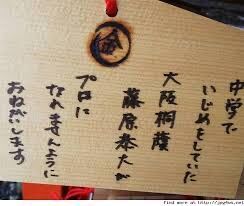 金
中学で
いじめをしていた
大阪桐蔭
藤原孝大が
プロに
なれませんように
おねがいします
find more at http://jpg4us.net